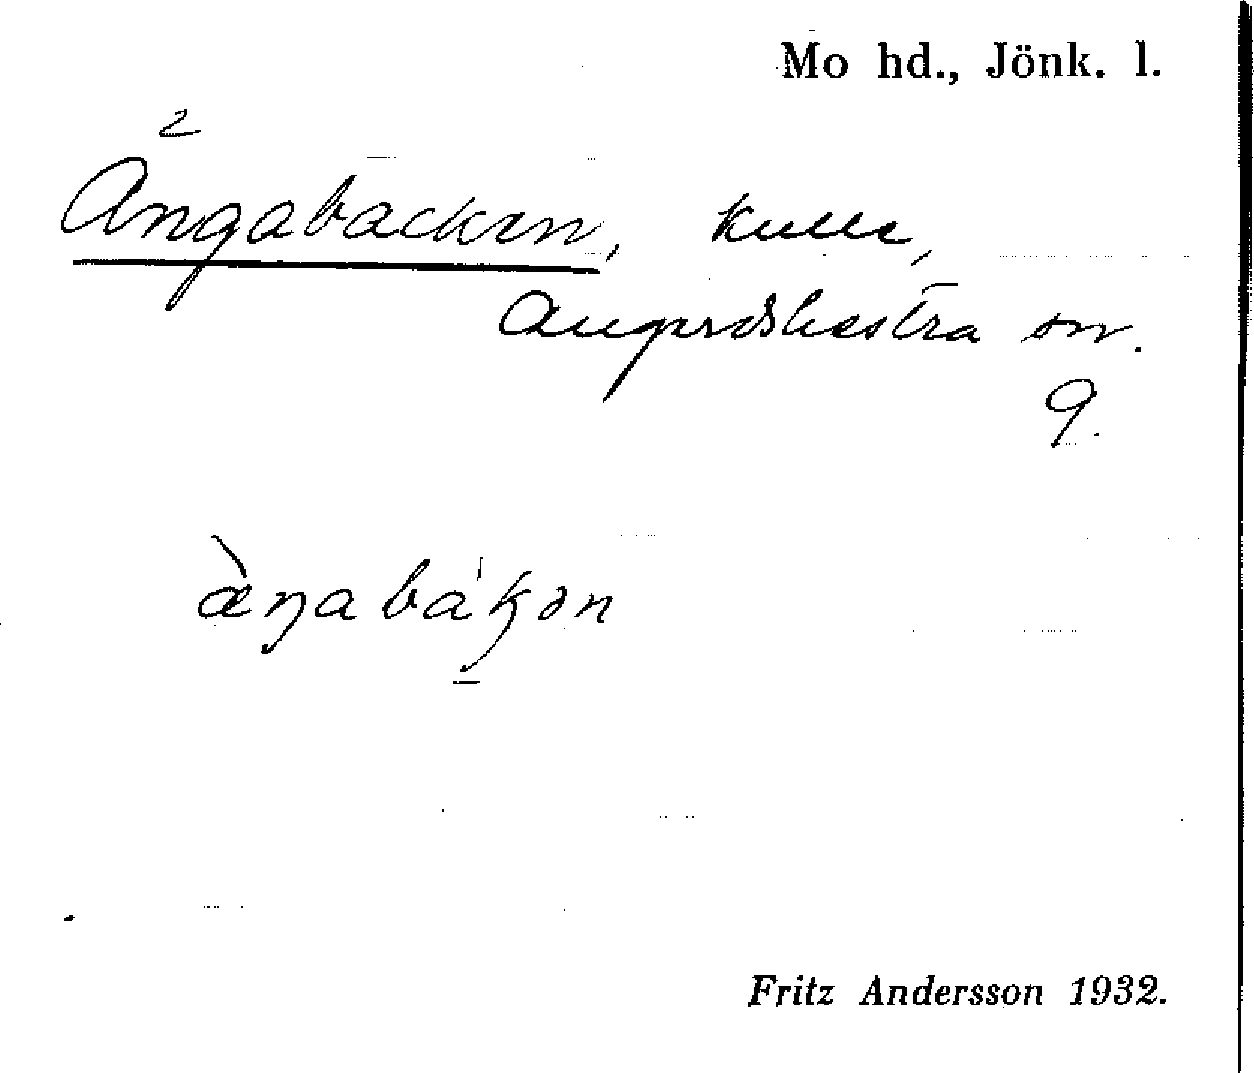 Mo hd., Jönk. l.
Ängabacken, kulle,
Angerdshestra sn.
9.
æ̀ŋabákən
Fritz Andersson 1932.